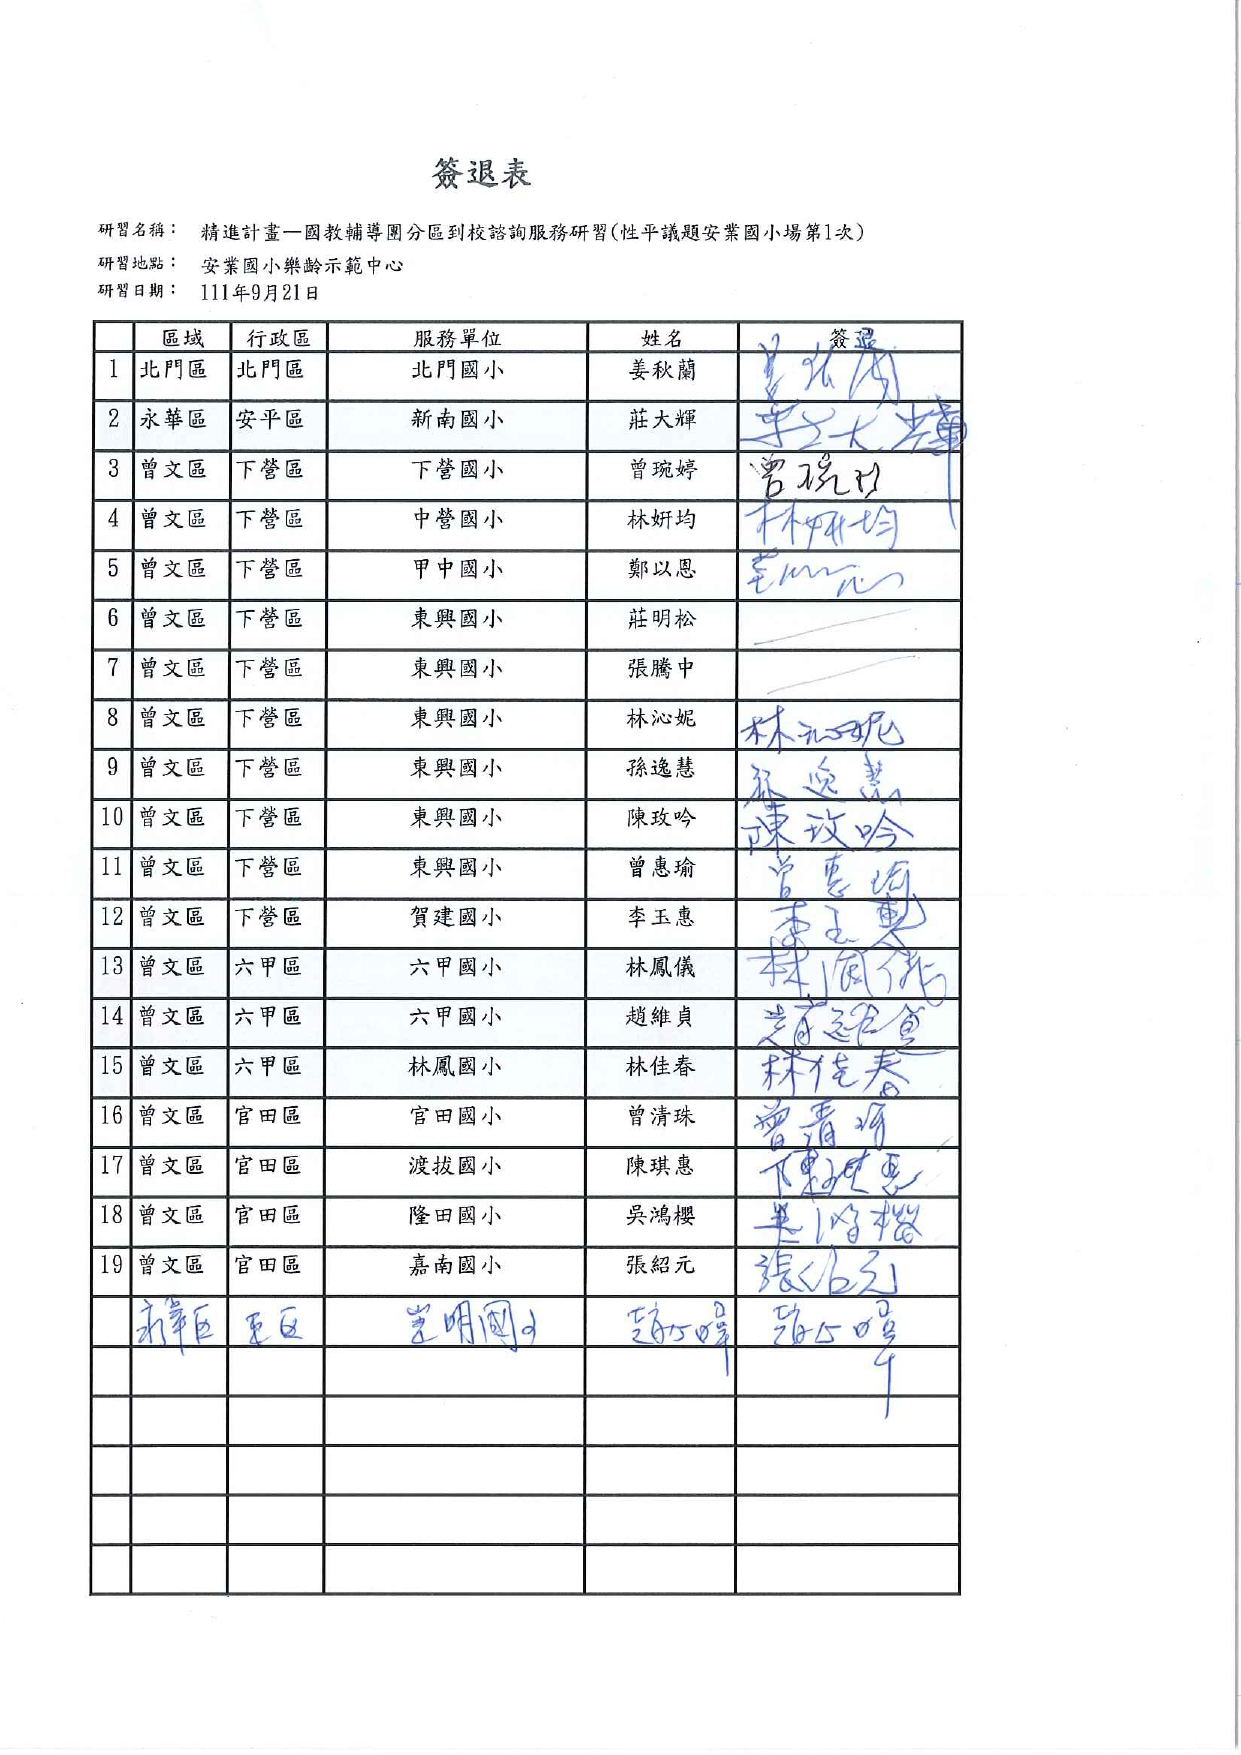 簽退表
研習名稱： 精進計畫—國教輔導團分區到校諮詢服務研習(性平議題安業國小場第1次)
研習地點： 安業國小樂齡示範中心
研習日期： 111年9月21日
區域 行政區 服務單位 姓名 簽退
1 北門區 北門區 北門國小 姜秋蘭 姜秋蘭
2 永華區 安平區 新南國小 莊大輝 莊大輝
3 曾文區 下營區 下營國小 曾琬婷 曾琬
4 曾文區 下營區 中營國小 林妍均 林妍均
5 曾文區 下營區 甲中國小 鄭以恩
6 曾文區 下營區 東興國小 莊明松
7 曾文區 下營區 東興國小 張騰中
8 曾文區 下營區 東興國小 林沁妮 林沁妮
9 曾文區 下營區 東興國小 孫逸慧 孫逸慧
10 曾文區 下營區 東興國小 陳玫吟 陳玫吟
11 曾文區 下營區 東興國小 曾惠瑜 曾惠瑜
12 曾文區 下營區 賀建國小 李玉惠 李玉惠
13 曾文區 六甲區 六甲國小 林鳳儀 林鳳儀
14 曾文區 六甲區 六甲國小 趙維貞 趙維貞
15 曾文區 六甲區 林鳳國小 林佳春 林佳春
16 曾文區 官田區 官田國小 曾清珠 曾清珠
17 曾文區 官田區 渡拔國小 陳琪惠 陳琪惠
18 曾文區 官田區 隆田國小 吳鴻櫻 吳鴻櫻
19 曾文區 官田區 嘉南國小 張紹元 張紹元
永華区 東区 崇明國小